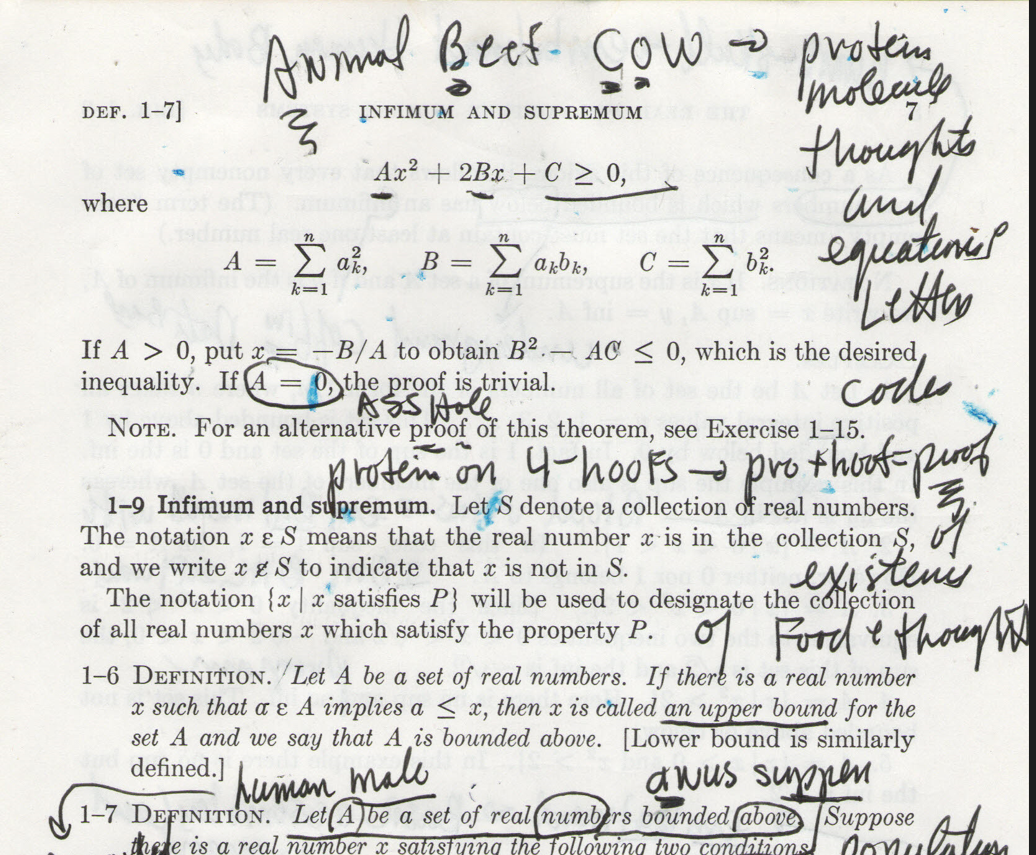 Animal Bees COW → protein
molecule
DEF. 1–7] INFIMUM AND SUPREMUM 7
thoughts
Ax² + 2Bx + C ≥ 0,
and
where
equations
A = ∑ₖ₌₁ⁿ aₖ², B = ∑ₖ₌₁ⁿ aₖbₖ, C = ∑ₖ₌₁ⁿ bₖ².
Letters
If A > 0, put x = −B/A to obtain B² − AC ≤ 0, which is the desired
inequality. If A = 0, the proof is trivial.
codes
ASS Hole
NOTE. For an alternative proof of this theorem, see Exercise 1–15.
protein on 4-hoofs → pro + hoof = proof
1–9 Infimum and supremum. Let S denote a collection of real numbers.
The notation x ε S means that the real number x is in the collection S,
of
and we write x ∉ S to indicate that x is not in S.
existens
The notation {x | x satisfies P} will be used to designate the collection
of all real numbers x which satisfy the property P.
of Food & thought
1–6 DEFINITION. Let A be a set of real numbers. If there is a real number
x such that a ε A implies a ≤ x, then x is called an upper bound for the
set A and we say that A is bounded above. [Lower bound is similarly
defined.]
human male anus suppen
1–7 DEFINITION. Let A be a set of real numbers bounded above. Suppose
there is a real number x satisfying the following two conditions: